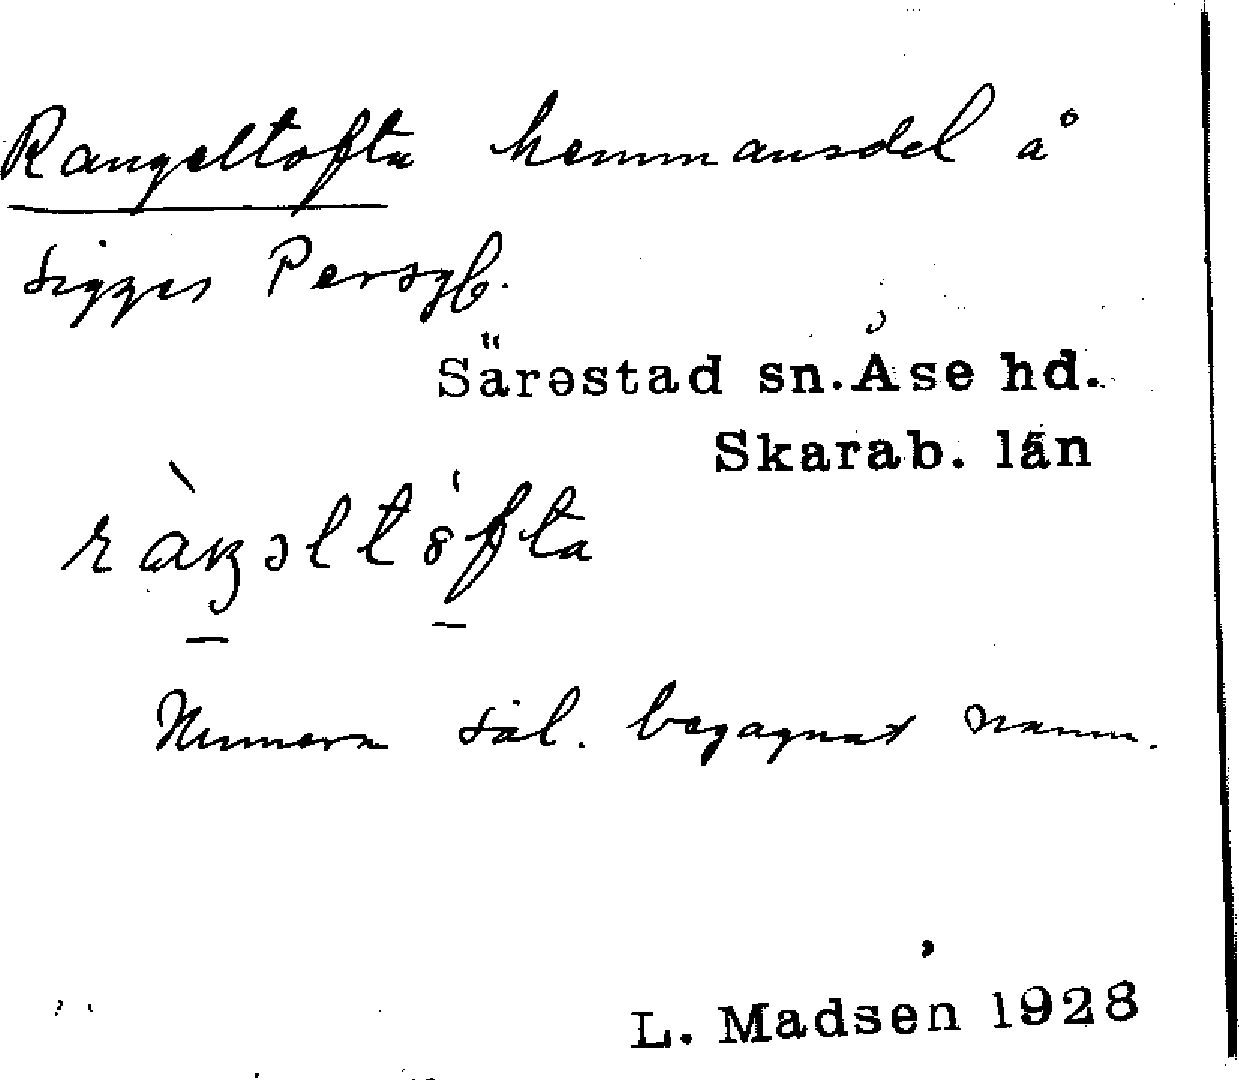 Rangeltofta hemmansdel å
Sigges Persgb.
Särestad sn. Åse hd.
Skarab. län
ràŋəltöfta
Numera säl. begagnat namn.
L. Madsen 1928